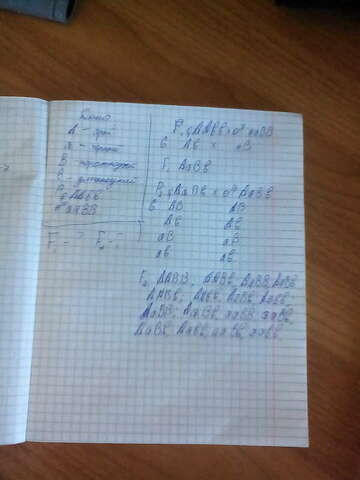 Дано
A -
a -
B - короткий
b -
P ♀ AAbb
♂ aaBB
F₁ - ? F₂ - ?
P ♀ AAbb x ♂ aaBB
G Ab x aB
F₁ AaBb
P₂ ♀ AaBb x ♂ AaBb
G AB AB
Ab Ab
aB aB
ab ab
F₂ AABB, AABb, AaBB, AaBb,
AABb, AAbb, AaBb, Aabb,
AaBB, AaBb, aaBB, aaBb,
AaBb, Aabb, aaBb, aabb.